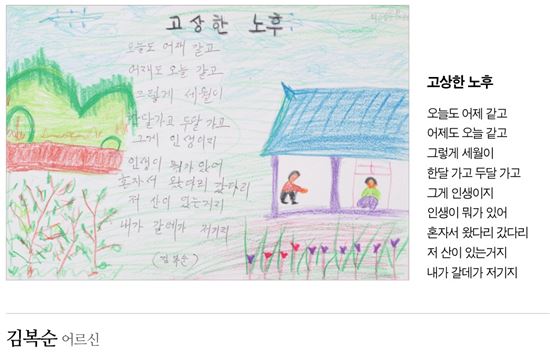 고상한 노후
오늘도 어제 같고
어제도 오늘 같고
그렇게 세월이
한달가고 두달 가고
그게 인생이지
인생이 뭐가 있어
혼자서 왔다리 갔다리
저 산이 있는거지
내가 갈데가 저기지
(김복순)
고상한 노후
오늘도 어제 같고
어제도 오늘 같고
그렇게 세월이
한달 가고 두달 가고
그게 인생이지
인생이 뭐가 있어
혼자서 왔다리 갔다리
저 산이 있는거지
내가 갈데가 저기지
김복순 어르신